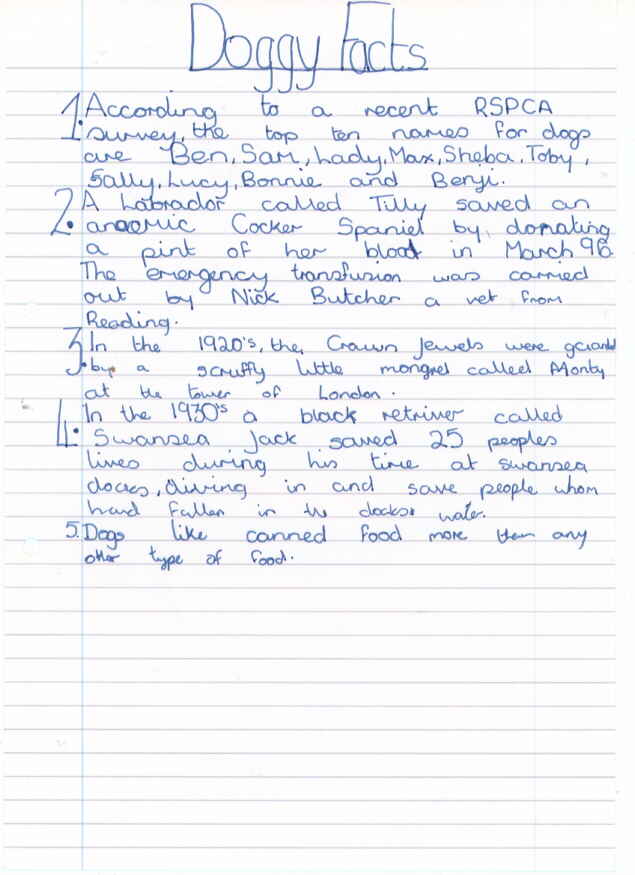 Doggy Facts
1. According to a recent RSPCA
survey, the top ten names for dogs
are Ben, Sam, Lady, Max, Sheba, Toby,
Sally, Lucy, Bonnie and Benji.
2. A Labrador called Tilly saved an
anaemic Cocker Spaniel by donating
a pint of her blood in March 96.
The emergency transfusion was carried
out by Nick Butcher a vet from
Reading.
3. In the 1920's, the Crown Jewels were guarded
by a scruffy little mongrel called Monty
at the tower of London.
4. In the 1930's a black retriver called
Swansea Jack saved 25 peoples
lives during his time at swansea
docks, diving in and save people whom
had fallen in the docks water.
5. Dogs like canned food more then any
other type of food.